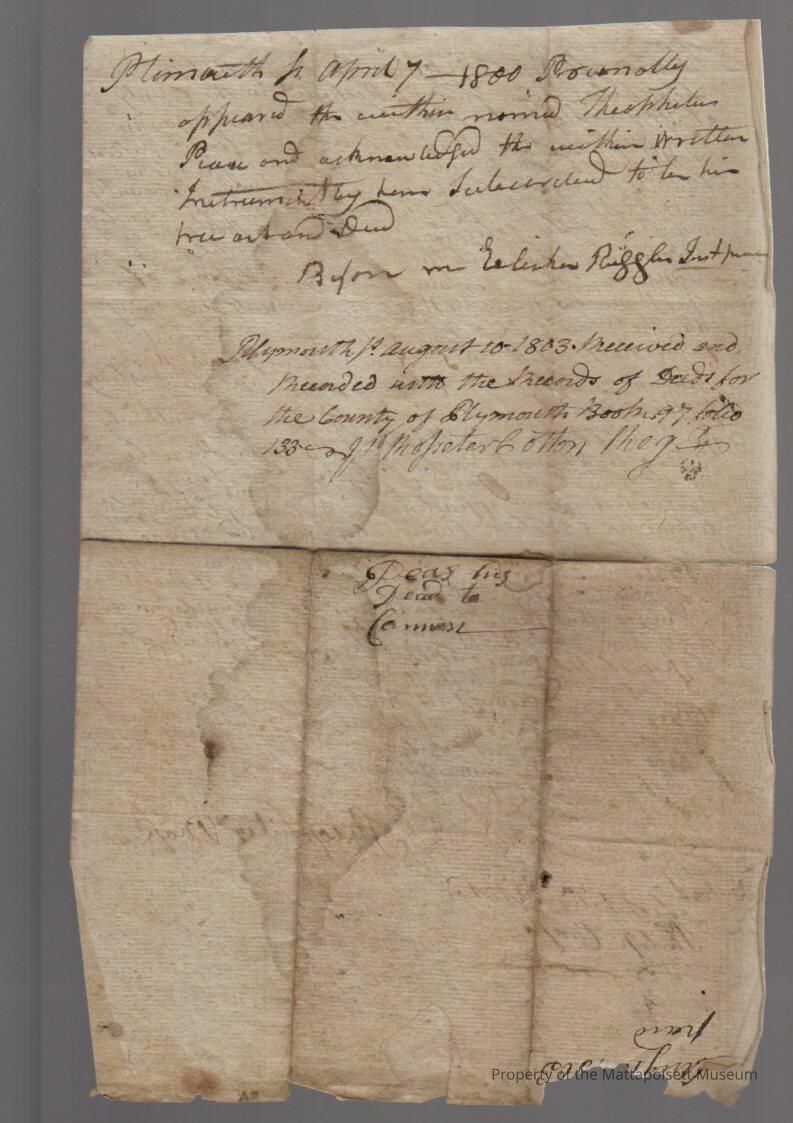 Plimouth ss April 7 — 1800 Personally
appeared the within named Theophelus
Pease and acknowledged the within Written
Instrument by him Subscribed to be his
free act and Deed
Before me Elisha Ruggles Just peace
Plymouth ss. August 10 1803. Received and
Recorded with the Records of Deeds for
the County of Plymouth Book 97 folio
133
Rosseter Cotton Regr
Peas his
Deed to
Cannon
Property of the Mattapoisett Museum